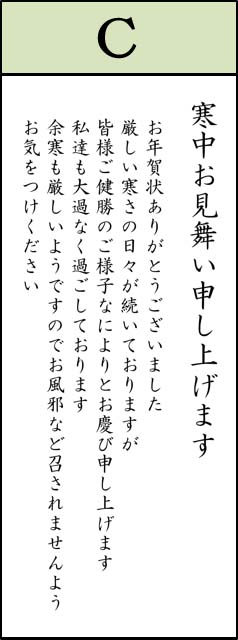 C
寒中お見舞い申し上げます
お年賀状ありがとうございました
厳しい寒さの日々が続いておりますが
皆様ご健勝のご様子なによりとお慶び申し上げます
私達も大過なく過ごしております
余寒も厳しいようですのでお風邪など召されませんよう
お気をつけください